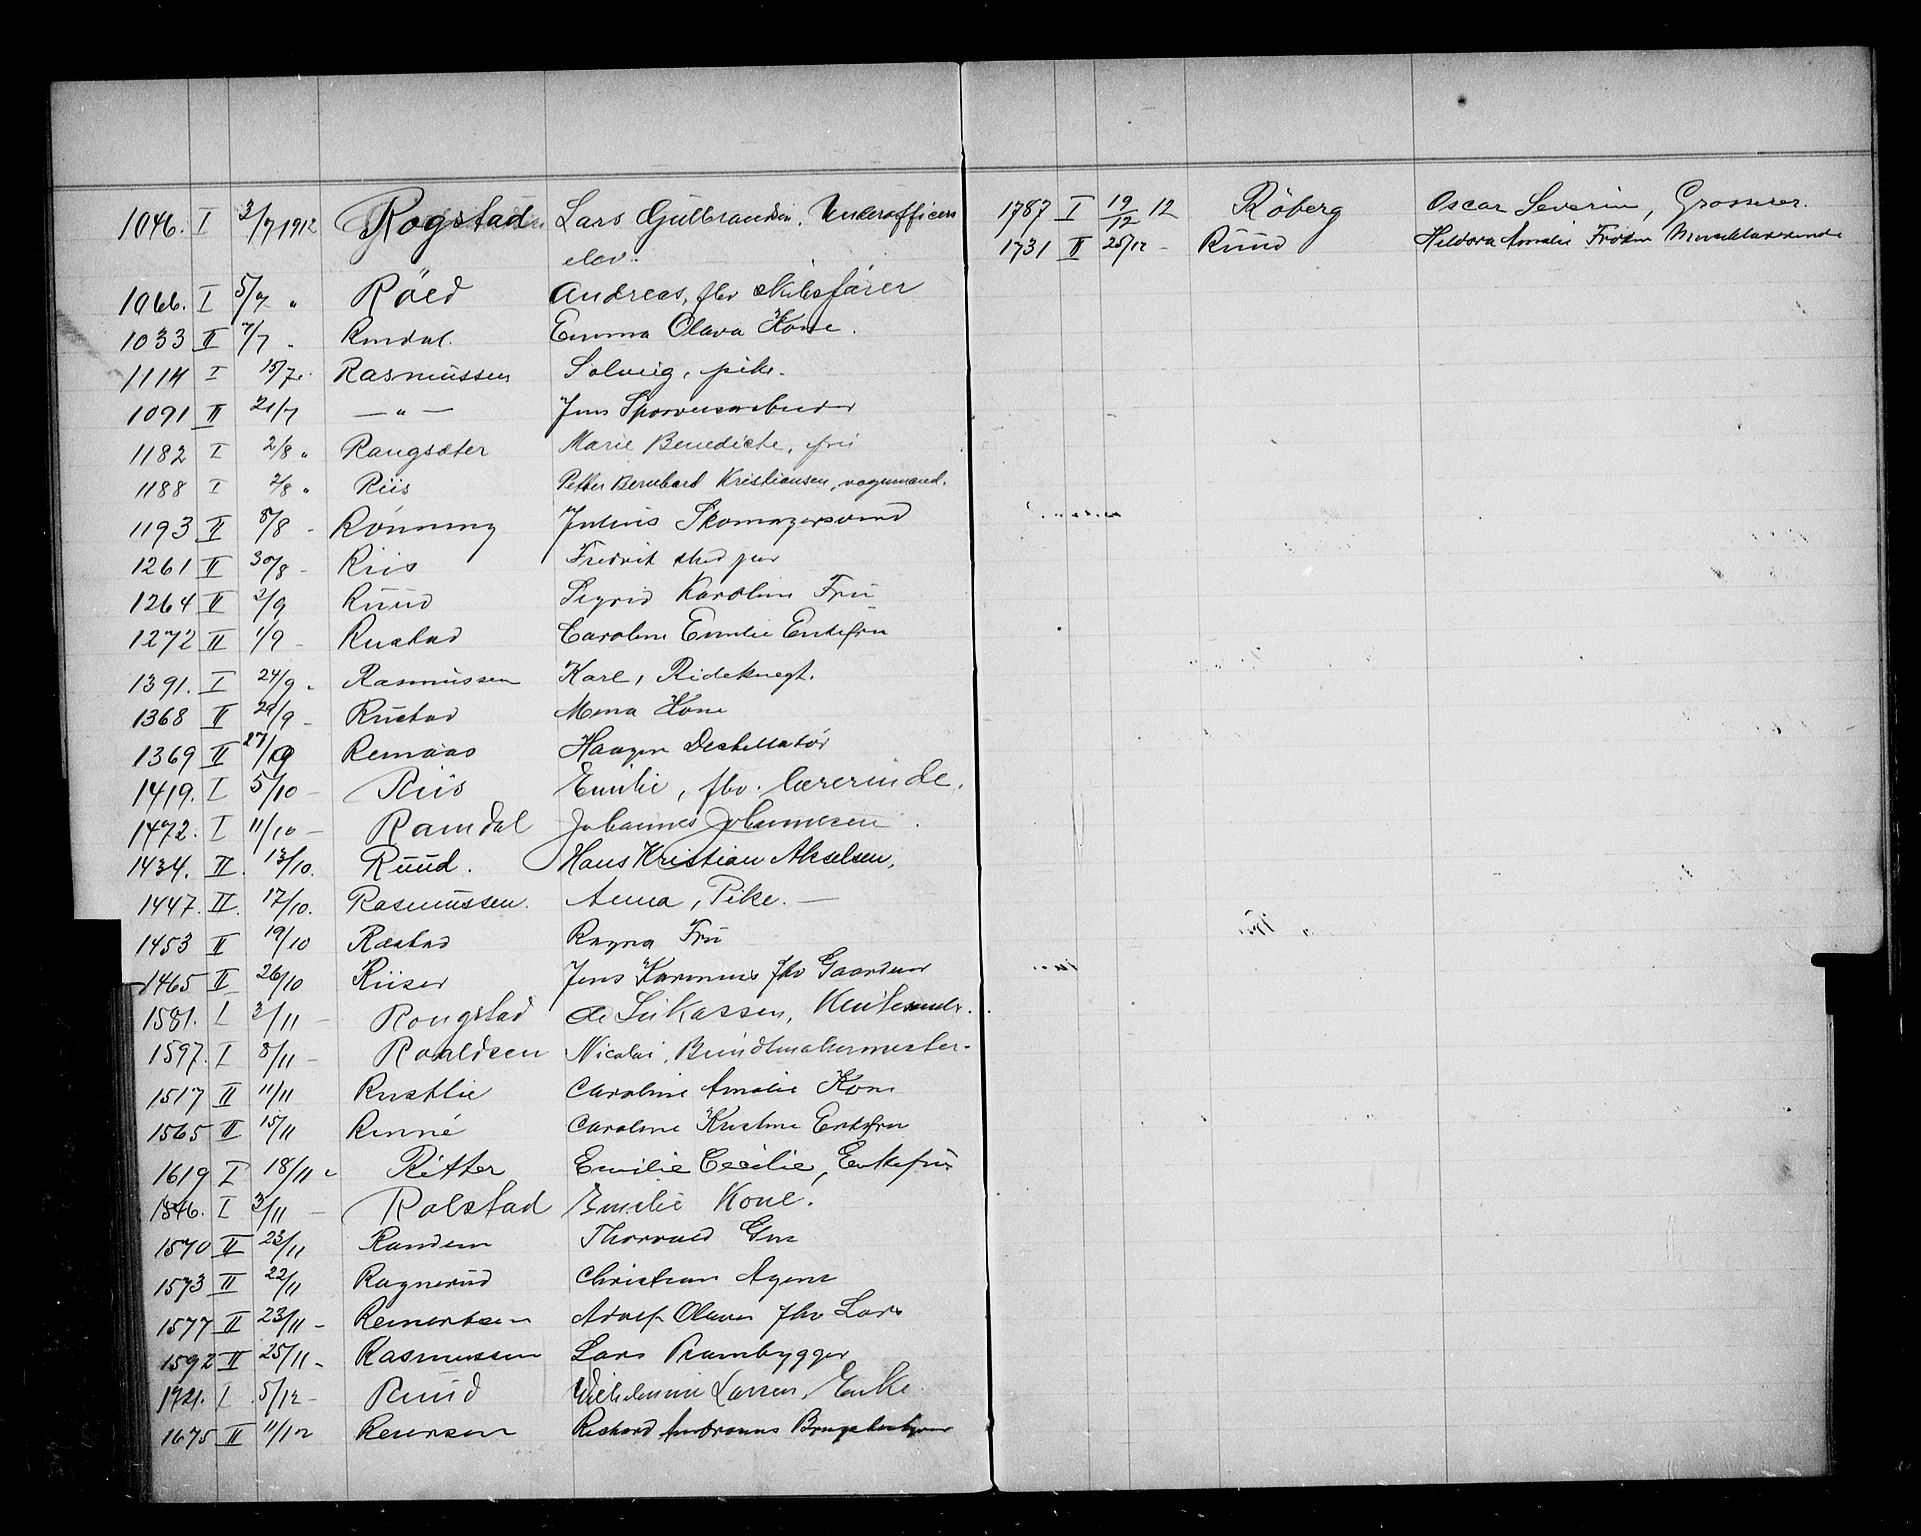 1046. I 3/7 1912 Rogstad Lars Gulbrandsen. Underofficers
elev.
1066. I 5/7 " Röed Andreas, fhv skibsfører
1033 II 7/7 - Rmdal. Emma Olava Kone.
1114 I 15/7 . Rasmussen Solveig, pike.
1091 II 21/7 — " — Jens
1182 I 2/8 " Rangsæter Marie Benedicte, fru
1188 I 2/8 " Riis Petter Bernhard Kristiansen, vognmand.
1193 II 5/8 - Rönning Julius Skomagersvend
1261 II 30/8 - Riis Fredrik
1264 II 2/9 Ruud Sigrid Karoline Fru
1272 II 1/9 - Rustad Caroline Emilie Enkefru
1391. I 24/9 " Rasmussen Karl, Rideknegt.
1368 II 29/9 - Rustad Mina Kone
1369 II 27/9 Remaas Haagen Destillatør
1419. I 5/10 - Riis Emilie, fhv. lærerinde.
1472. I 11/10 - Ramdal Johannes Johannesen.
1434. II. 13/10. Ruud. Hans Kristian Akselsen,
1447. II. 17/10. Rasmussen. Anna, Pike. —
1453 II 19/10 Ræstad Ragna Fru
1465 II 26/10 Riiser Jens fhv Gaardeier
1581. I 3/11 - Rongstad
1597. I 8/11 - Roaldsen Nicolai, Bundtmakermester.
1517 II 11/11 Rustlie Caroline Amalie Kone
1565 II 15/11 Rinné Caroline Kristine Enkefru
1619 I 18/11 " Ritter Emilie Cecilie, Enkefru
1546. I 3/11 - Rolstad Emilie Kone.
1570 II 23/11 Randem Thorvald
1573 II 22/11 Ragnerud Christian Agent
1577 II 23/11 - Reinertsen Adolf Olaves fhv Lods
1592 II 25/11 - Rasmussen Lars Prambygger
1721. I 5/12 - Ruud Vilhelmine Larsen, Enke.
1675 II 11/12 Reiersen Richard Brugsbestyrer
1787 I 19/12 12 Röberg Oscar Severin, Grosserer.
1731 II 25/12 - Ruud Heldora Amalie Frøken Musiklærerinde